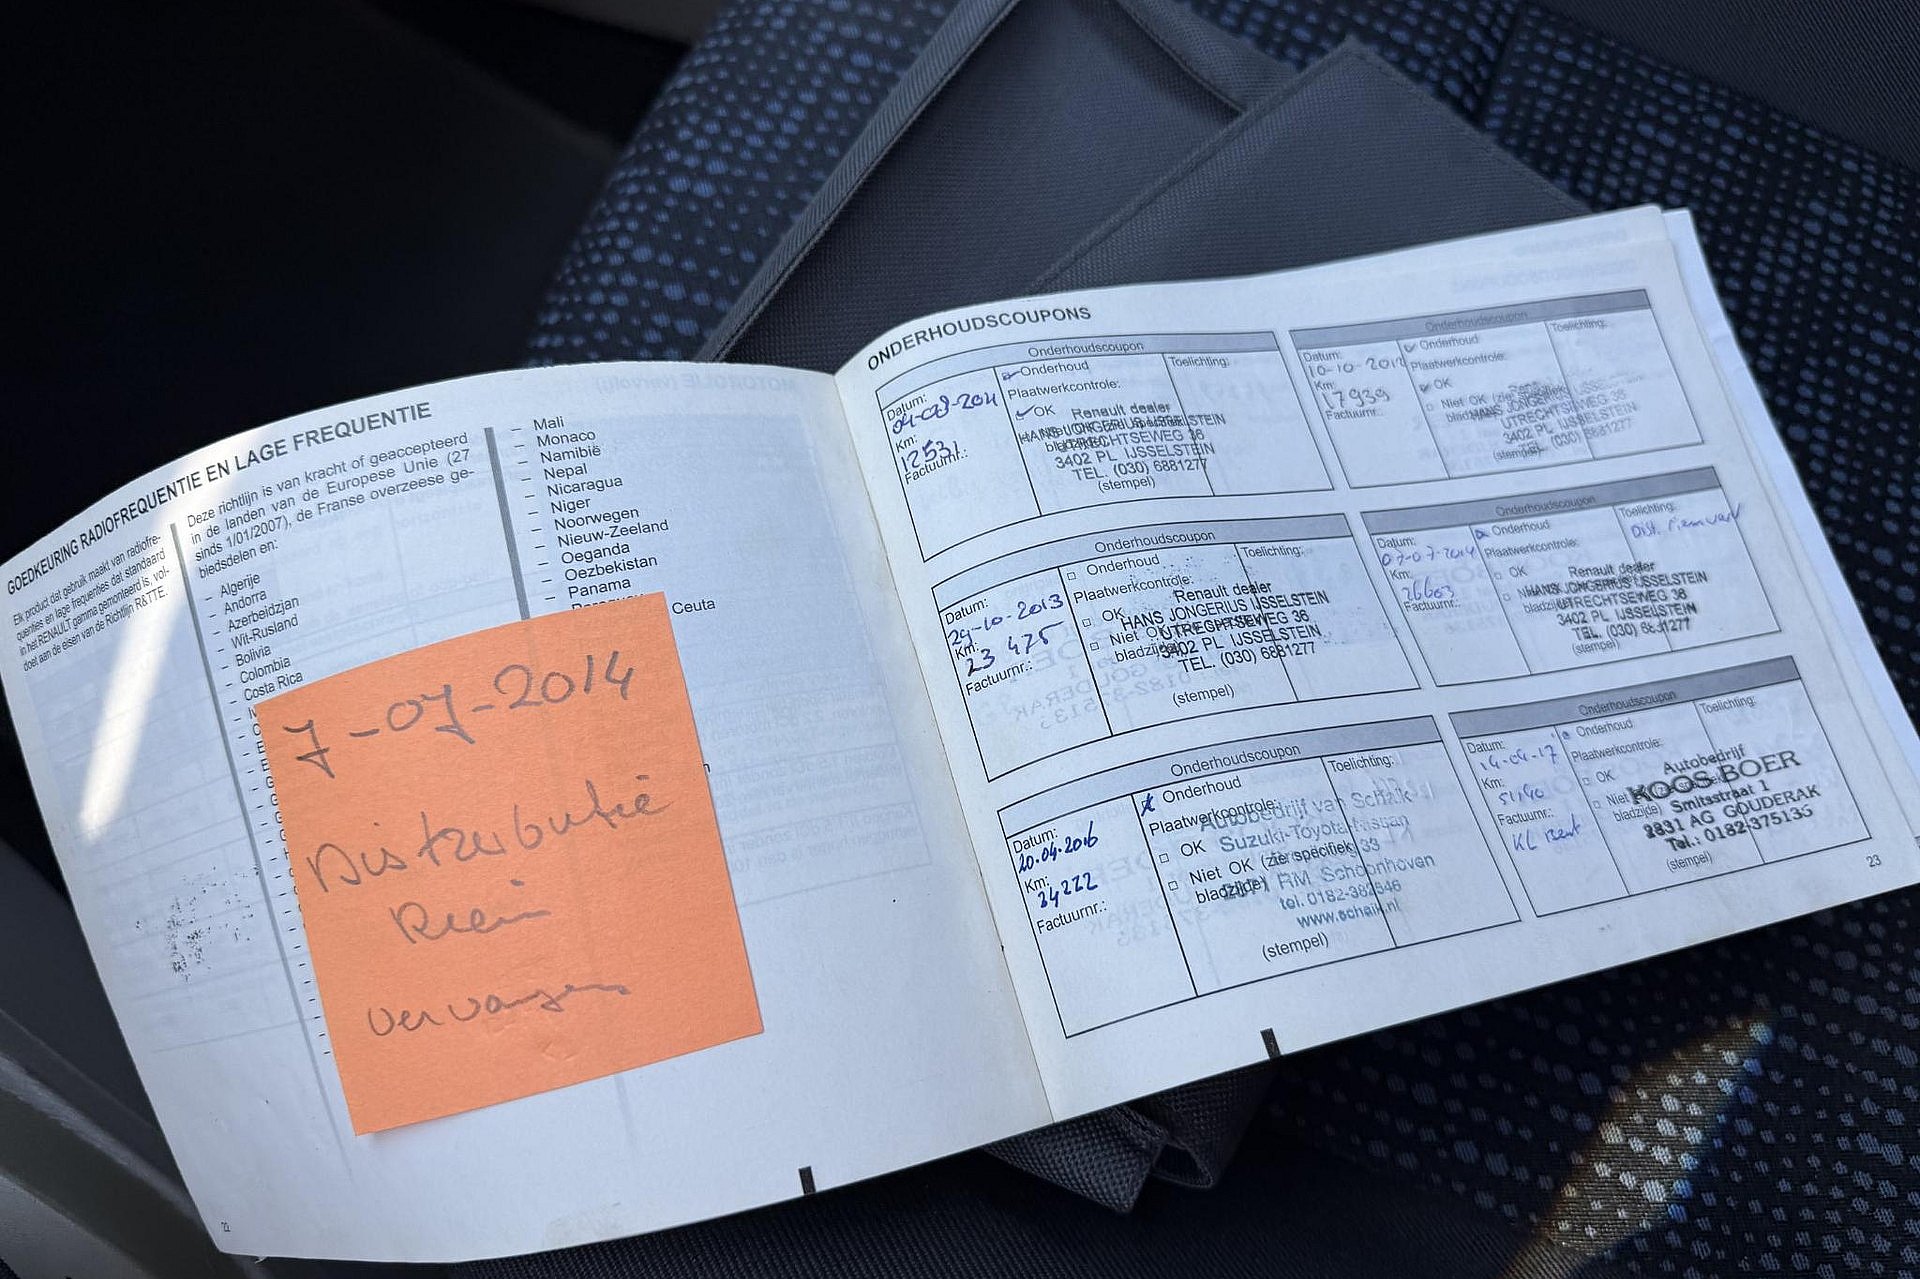 GOEDKEURING RADIOFREQUENTIE EN LAGE FREQUENTIE
Elk product dat gebruik maakt van radiofre-
quenties en lage frequenties dat standaard
in het RENAULT gamma gemonteerd is, vol-
doet aan de eisen van de Richtlijn R&TTE.
Deze richtlijn is van kracht of geaccepteerd
in de landen van de Europese Unie (27
sinds 1/01/2007), de Franse overzeese ge-
biedsdelen en:
– Algerije
– Andorra
– Azerbeidzjan
– Wit-Rusland
– Bolivia
– Colombia
– Costa Rica
– Mali
– Monaco
– Namibië
– Nepal
– Nicaragua
– Niger
– Noorwegen
– Nieuw-Zeeland
– Oeganda
– Oezbekistan
– Panama
Ceuta
7-07-2014
Distributie
Riem
vervangen
22
ONDERHOUDSCOUPONS
Onderhoudscoupon
Datum:
04-08-2011
Km:
12531
Factuurnr.:
Onderhoud
Plaatwerkcontrole:
OK
Toelichting:
Renault dealer
HANS JONGERIUS IJSSELSTEIN
UTRECHTSEWEG 36
3402 PL IJSSELSTEIN
TEL. (030) 6881277
(stempel)
Onderhoudscoupon
Datum:
10-10-2012
Km:
17939
Factuurnr.:
Onderhoud
Plaatwerkcontrole:
OK
Toelichting:
HANS JONGERIUS IJSSELSTEIN
UTRECHTSEWEG 36
3402 PL IJSSELSTEIN
(030) 6881277
(stempel)
Onderhoudscoupon
Datum:
29-10-2013
Km:
23 475
Factuurnr.:
Onderhoud
Plaatwerkcontrole:
OK
Niet OK
bladzijde)
Toelichting:
Renault dealer
HANS JONGERIUS IJSSELSTEIN
UTRECHTSEWEG 36
3402 PL IJSSELSTEIN
TEL. (030) 6881277
(stempel)
Onderhoudscoupon
Datum:
07-07-2014
Km:
26603
Factuurnr.:
Onderhoud
Plaatwerkcontrole:
OK
Toelichting:
Dist. riem verv
Renault dealer
HANS JONGERIUS IJSSELSTEIN
UTRECHTSEWEG 36
3402 PL IJSSELSTEIN
TEL. (030) 6881277
(stempel)
Onderhoudscoupon
Datum:
20.04.2016
Km:
34222
Factuurnr.:
Onderhoud
Plaatwerkcontrole:
OK
Niet OK (zie specifiek
bladzijde)
Toelichting:
Autobedrijf van Schaik
Suzuki-Toyota-Nissan
33
RM Schoonhoven
tel. 0182-382546
www.schaik.nl
(stempel)
Onderhoudscoupon
Datum:
14-04-17
Km:
Factuurnr.:
KL beurt
Onderhoud
Plaatwerkcontrole:
OK
Niet
bladzijde)
Toelichting:
Autobedrijf
KOOS BOER
Smitsstraat 1
2831 AG GOUDERAK
Tel.: 0182-375135
(stempel)
23